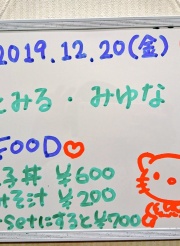 2019.12.20(金)
とみる・みゆな
FOOD
丼 ¥600
みそ汁 ¥200
Setにすると¥700